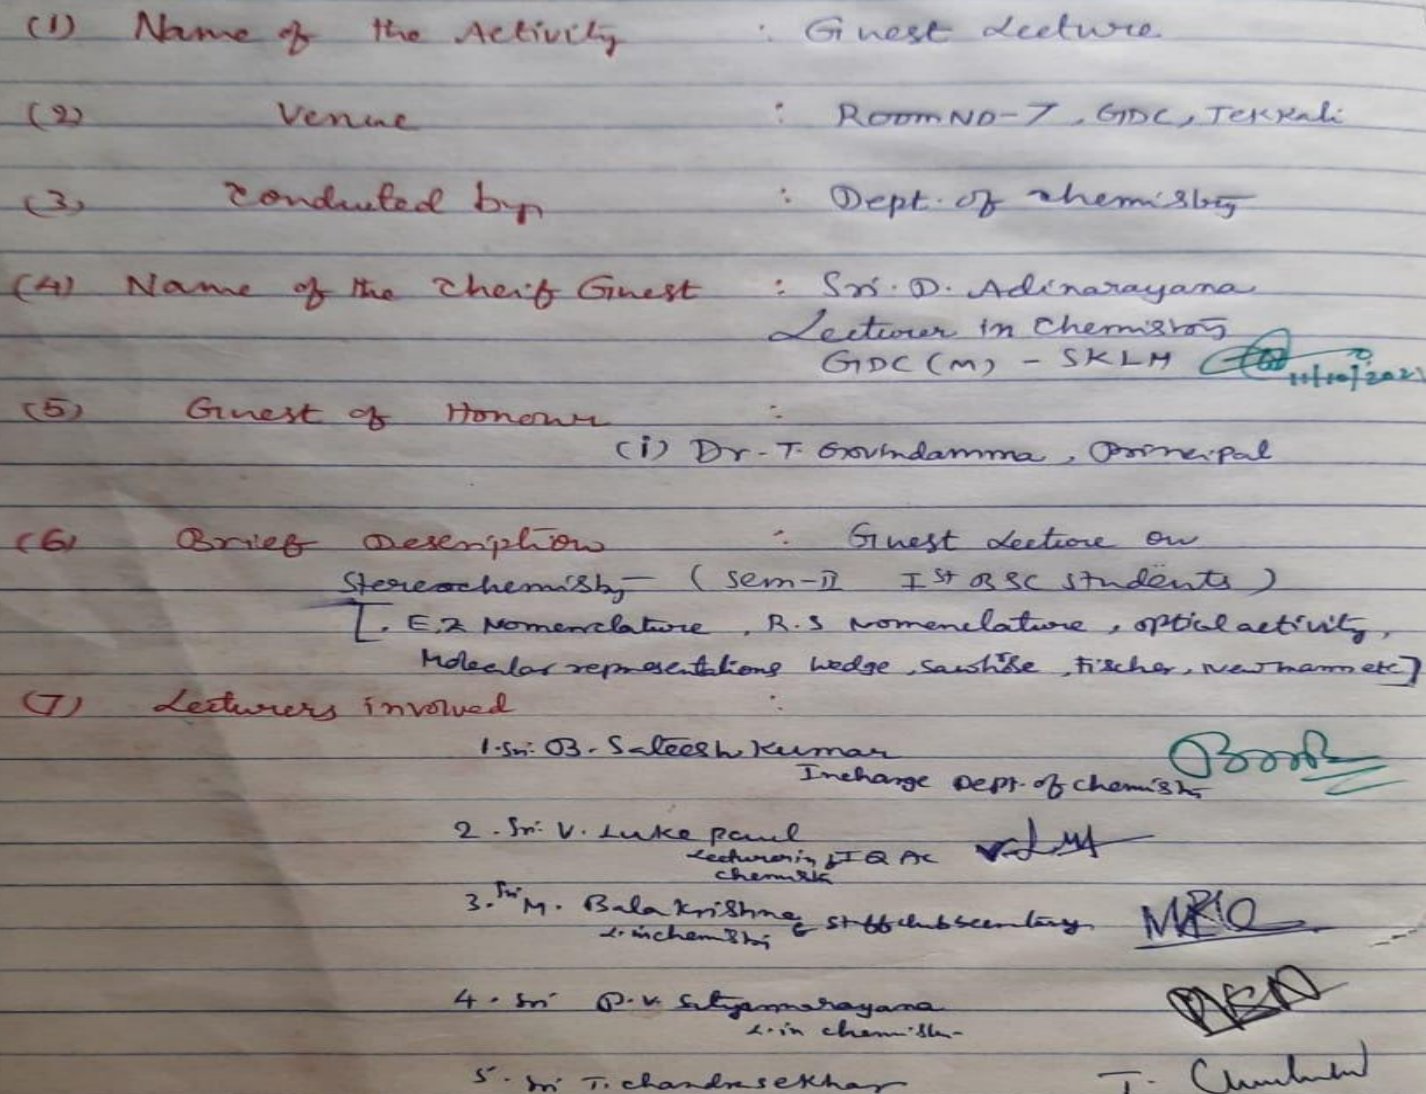 (1) Name of the Activity : Guest Lecture
(2) Venue : Room No-7, GDC, Tekkali
(3) Conducted by : Dept. of Chemistry
(4) Name of the Cheif Guest : Sri. D. Adinarayana
Lecturer in Chemistry
GDC (M) - SKLM
11/10/2021
(5) Guest of Honour :
(i) Dr. T. Govindamma, Principal
(6) Brief Description : Guest Lecture on
Stereochemistry (Sem-II Ist BSC students)
[. E,Z Nomenclature, R.S Nomenclature, optical activity,
Molecular representations wedge, sawhorse, Fischer, Newmann etc]
(7) Lecturers involved :
1. Sri. B. Sateesh Kumar
Incharge Dept. of Chemistry
2. Sri. V. Luke Paul
Lecturer in & IQAC
chemistry
3. Sri M. Bala Krishna
L. in chemistry & Staff club secretary
4. Sri P.V. Satyannarayana
L. in chemistry
5. Sri T. Chandrasekhar